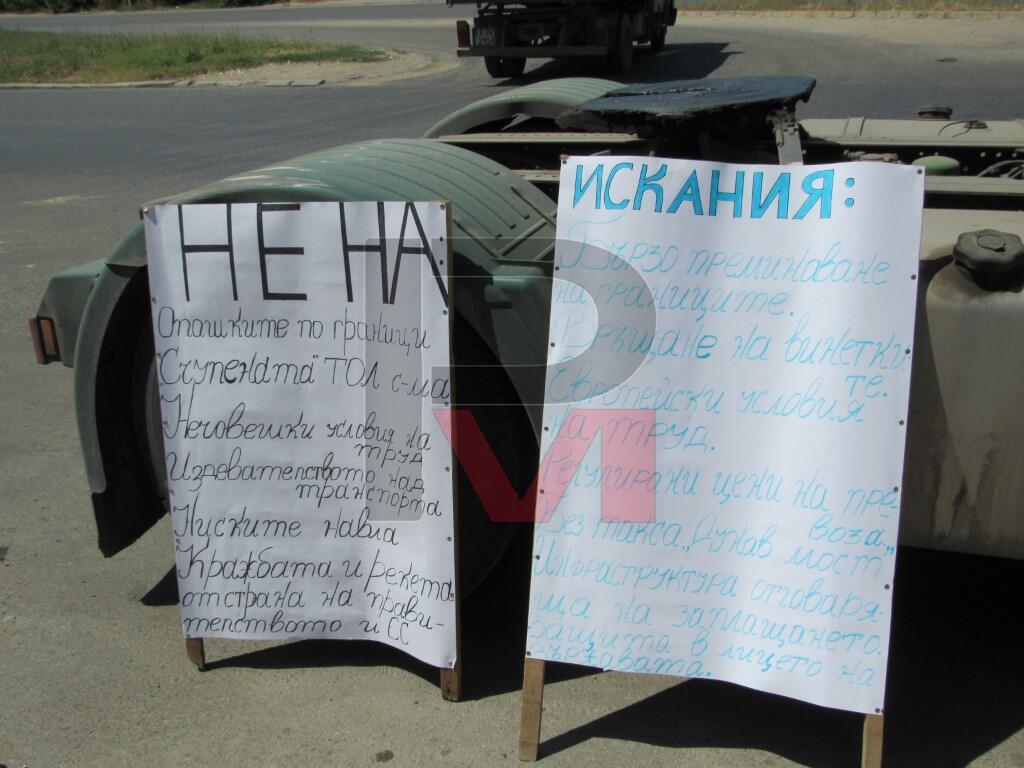 НЕ НА:
Опашките по граници
"Счупената" ТОЛ с-ма
Нечовешки условия на
труд
Издевателството над
транспорта
Ниските навла
Кражбата и рекета
от страна на прави-
телството и СС
ИСКАНИЯ:
Бързо преминаване
на границите.
Връщане на винетки
те.
Европейски условия
на труд.
Регулирани цени на пре-
воза.
Без такса „Дунав мост"
Инфраструктура отговаря-
ща на заплащането.
Защита в лицето на
държавата.